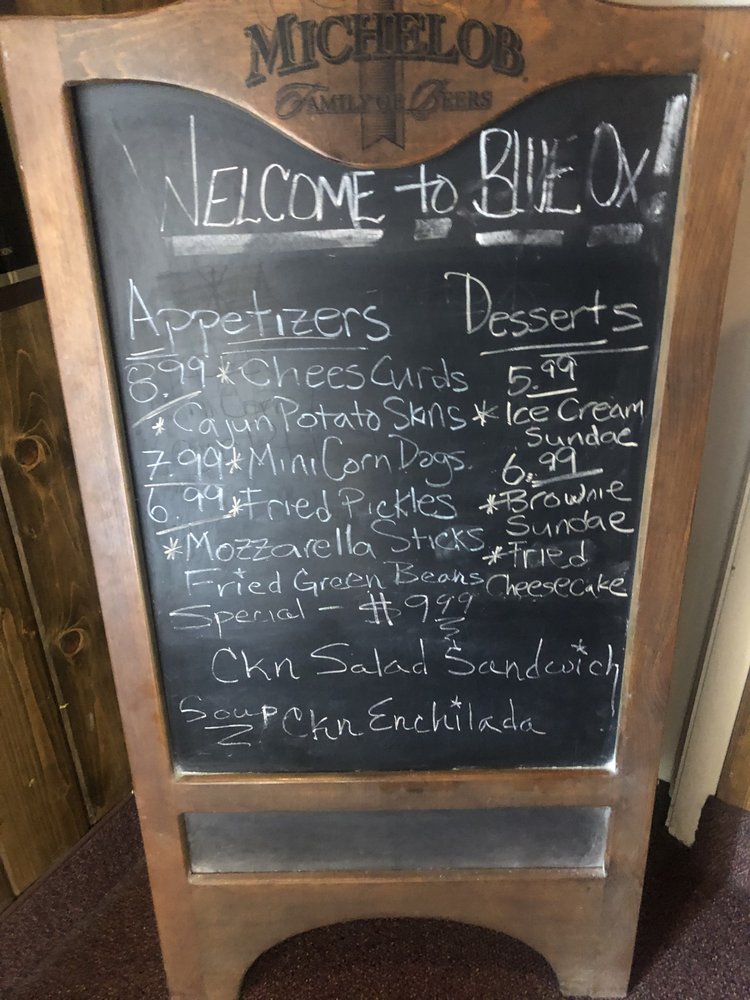 MICHELOB
FAMILY OF BEERS
WELCOME to BLUE OX!
Appetizers
8.99 * Chees Curds
* Cajun Potato Skins
7.99 * Mini Corn Dogs
6.99 * Fried Pickles
* Mozzarella Sticks
Fried Green Beans
Desserts
5.99
* Ice Cream
Sundae
6.99
* Brownie
Sundae
* Fried
Cheesecake
Special - $9.99
Ckn Salad Sandwich
Soup Ckn Enchilada